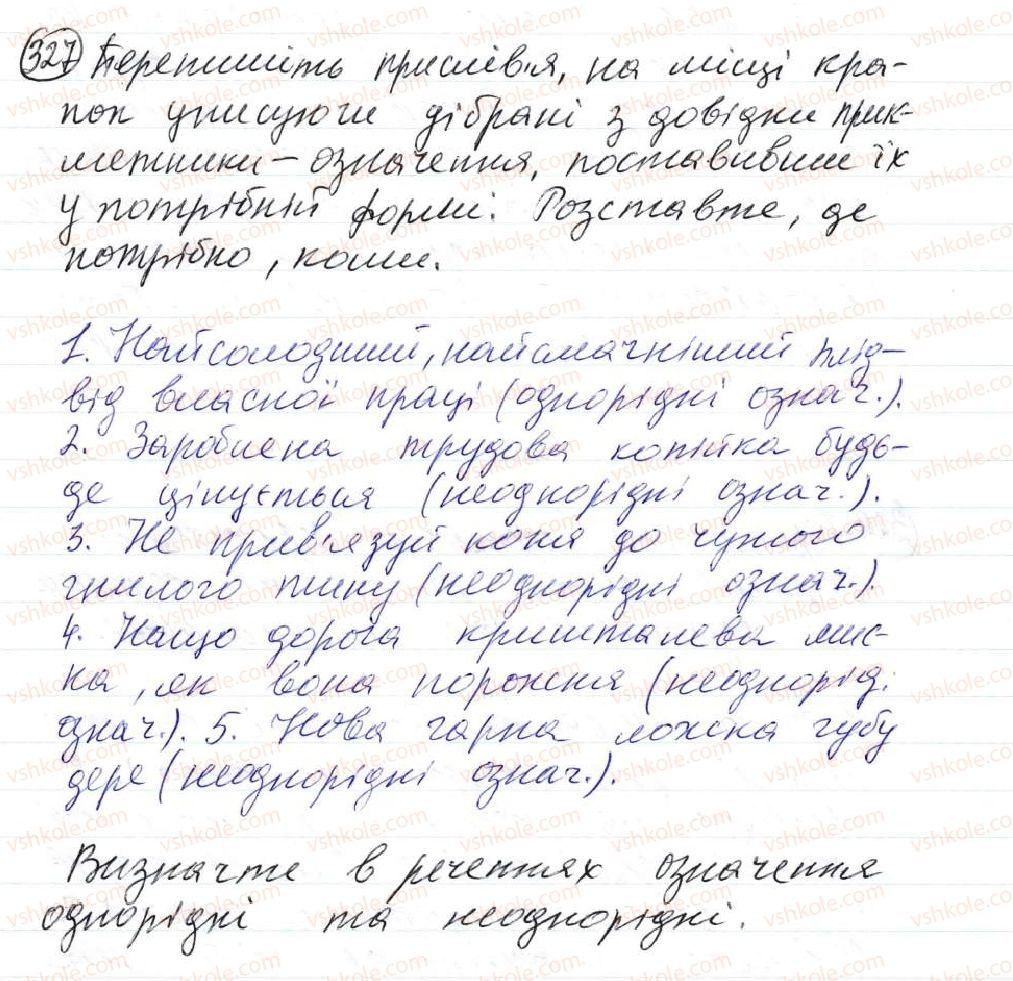 327 Перепишіть прислів'я, на місці кра-
пок уписуючи дібрані з довідки прик-
метники - означення, поставивши їх
у потрібній формі. Розставте, де
потрібно, коми.
1. Найсолодший, найсмачніший плід -
від власної праці (однорідні означ.).
2. Зароблена трудова копійка будь-
де цінується (неоднорідні означ.).
3. Не прив'язуй коня до чужого
гнилого тину (неоднорідні означ.).
4. Нащо дорога кришталева мис-
ка, як вона порожня (неоднорід.
означ.). 5. Нова гарна ложка губу
дере (неоднорідні означ.).
Визначте в реченнях означення
однорідні та неоднорідні.